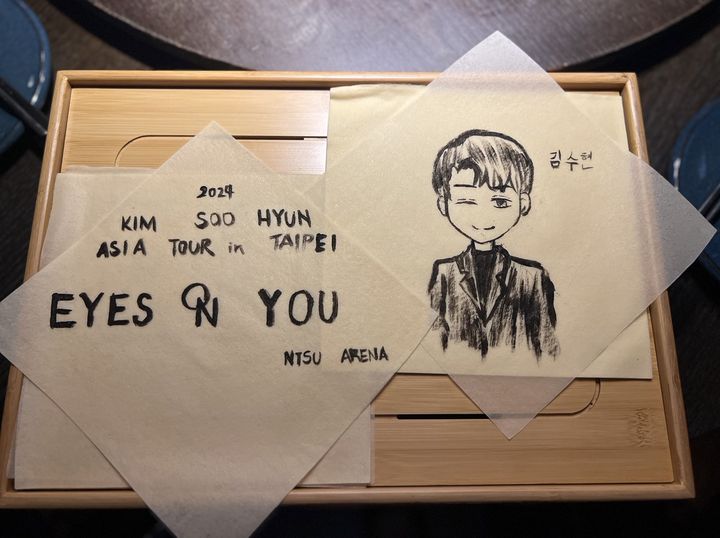 2024
KIM SOO HYUN
ASIA TOUR in TAIPEI
EYES ON YOU
NTSU ARENA
김수현